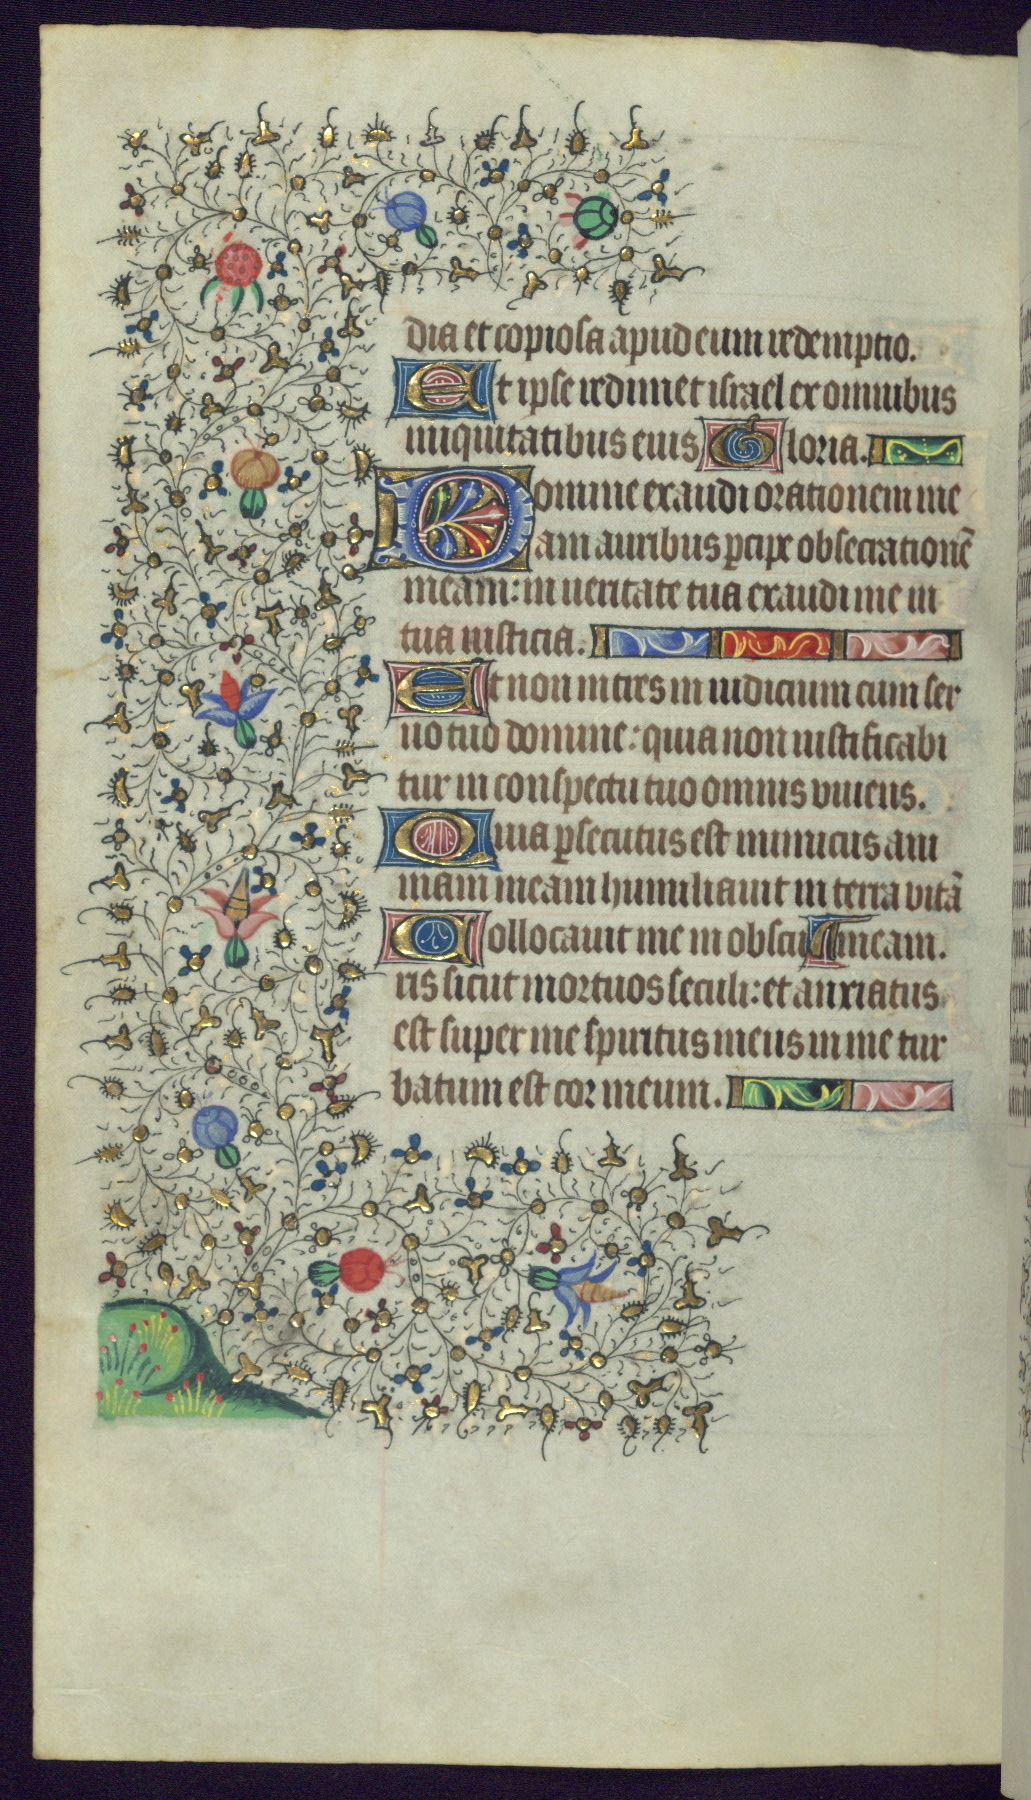 dia et copiosa apud eum redemptio.
Et ipse redimet israel ex omnibus
iniquitatibus eius Gloria.
Domine exaudi orationem me
am auribus ꝑcipe obsecrationē
meam: in ueritate tua exaudi me in
tua iusticia.
Et non intres in iudicium cum ser
uo tuo domine: quia non iustificabi
tur in conspectu tuo omnis viuens.
Quia ꝑsecutus est inimicus ani
mam meam humiliauit in terra vitā
Collocauit me in obscu meam.
ris sicut mortuos seculi: et anxiatus
est super me spiritus meus in me tur
batum est cor meum.